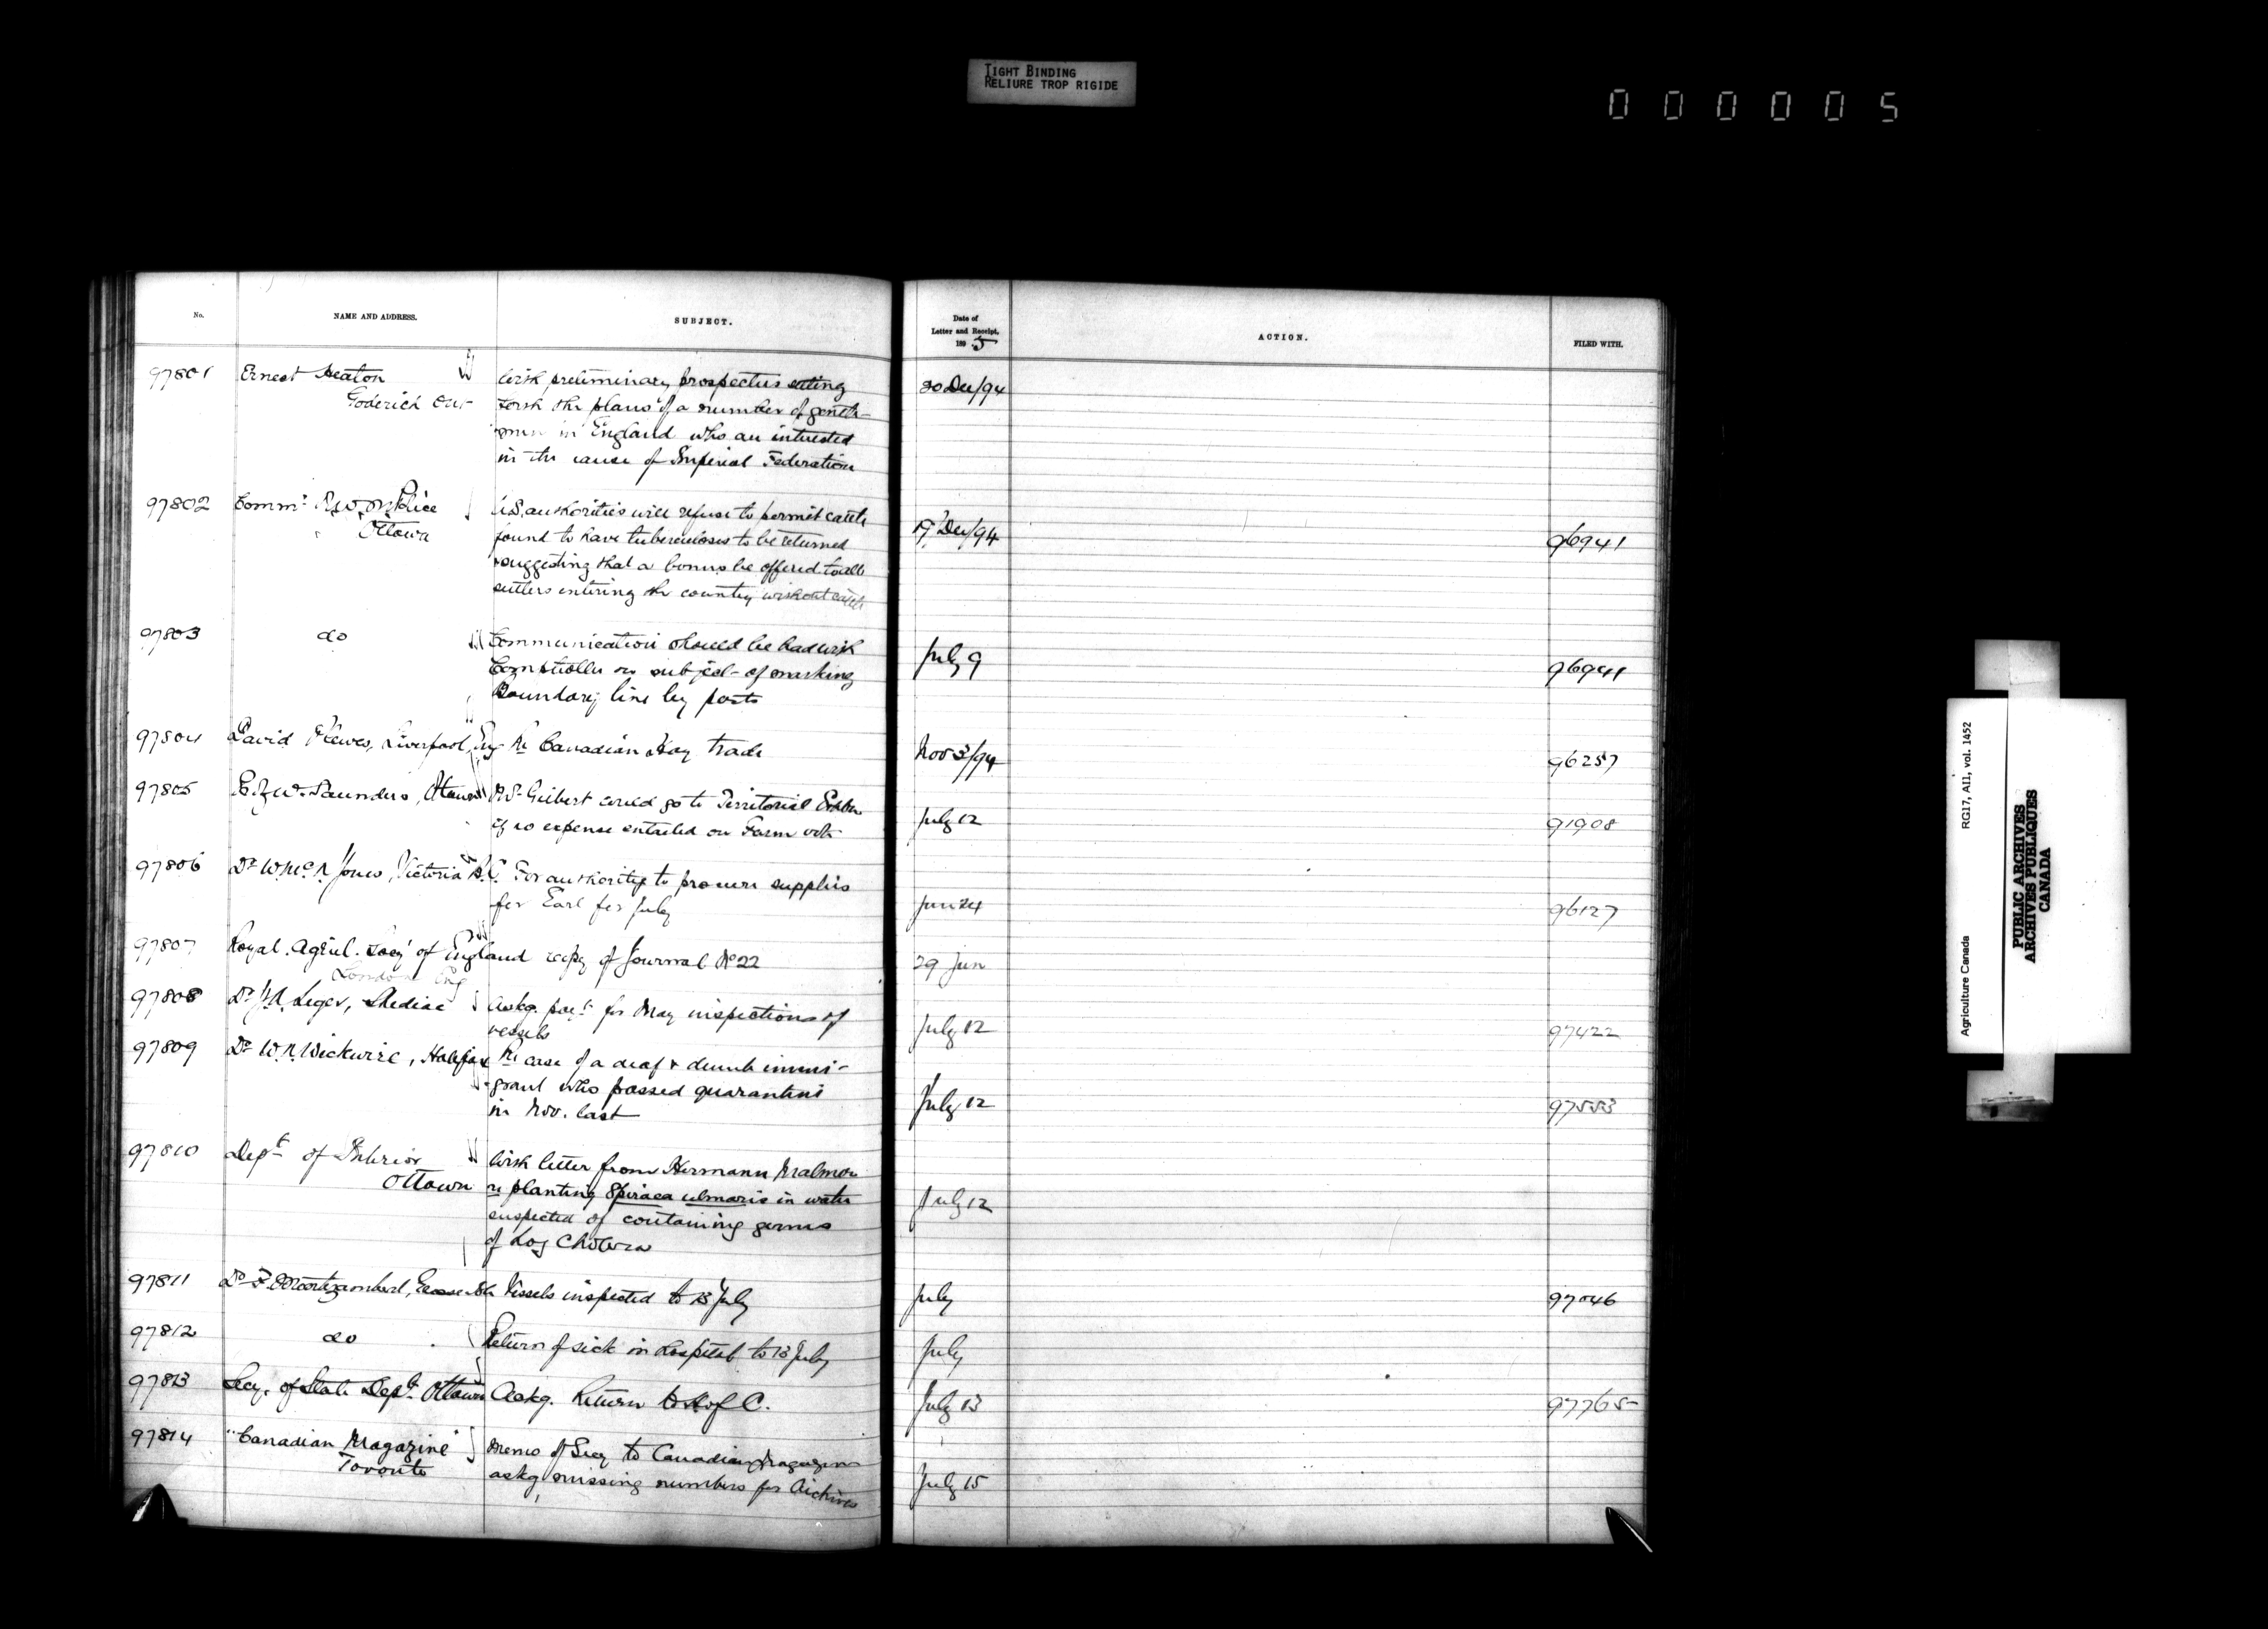 TIGHT BINDING
RELIURE TROP RIGIDE
000005
No. NAME AND ADDRESS. SUBJECT. Date of Letter and Receipt, 1895 ACTION. FILED WITH.
97801 Ernest Heaton With preliminary prospectus setting 20 Dec/94
Goderich Ont forth the plans of a number of gentle-
men in England who are interested
in the cause of Imperial Federation
97802 Comm^r N.W.M. Police U.S. authorities will refuse to permit cattle 19 Dec/94 96941
Ottawa found to have tuberculosis to be returned
suggesting that a bonus be offered to all
settlers entering the country without cattle
97803 do Communication should be had with July 9 96941
Comptroller on subject of marking
Boundary line by posts
97804 David Plewes, Liverpool, Eng Re Canadian Hay trade Nov 3/94 96257
97805 Saunders, Ottawa Mr Gilbert could go to Territorial Exhbn July 12 91908
if no expense entailed on Farm vote
97806 Dr W. McN. Jones, Victoria B.C. For authority to procure supplies Jun 24 96127
for Earl for July
97807 Royal. Agricl. Socy of England copy of Journal No 22 29 Jun
London Eng
97808 Dr Leger, Shediac Askg. payt for May inspections of July 12 97422
vessels
97809 Dr W.N. Wickwire, Halifax Re case of a deaf & dumb immi- July 12 97553
grant who passed quarantine
in Nov. last
97810 Dept of Interior With letter from Hermann July 12
Ottawa re planting Spiraea ulmaris in water
suspected of containing germs
of Hog Cholera
97811 Dr F. Montizambert, Grosse Isle Vessels inspected to 13 July July 97046
97812 do Return of sick in hospital to 13 July July
97813 Secy. of State Dept. Ottawa Askg. Return to H of C. July 13 97765
97814 "Canadian Magazine" Memo of Secy to Canadian Magazine July 15
Toronto askg missing numbers for Archives
Agriculture Canada RG17, AI1, vol. 1452
PUBLIC ARCHIVES
ARCHIVES PUBLIQUES
CANADA